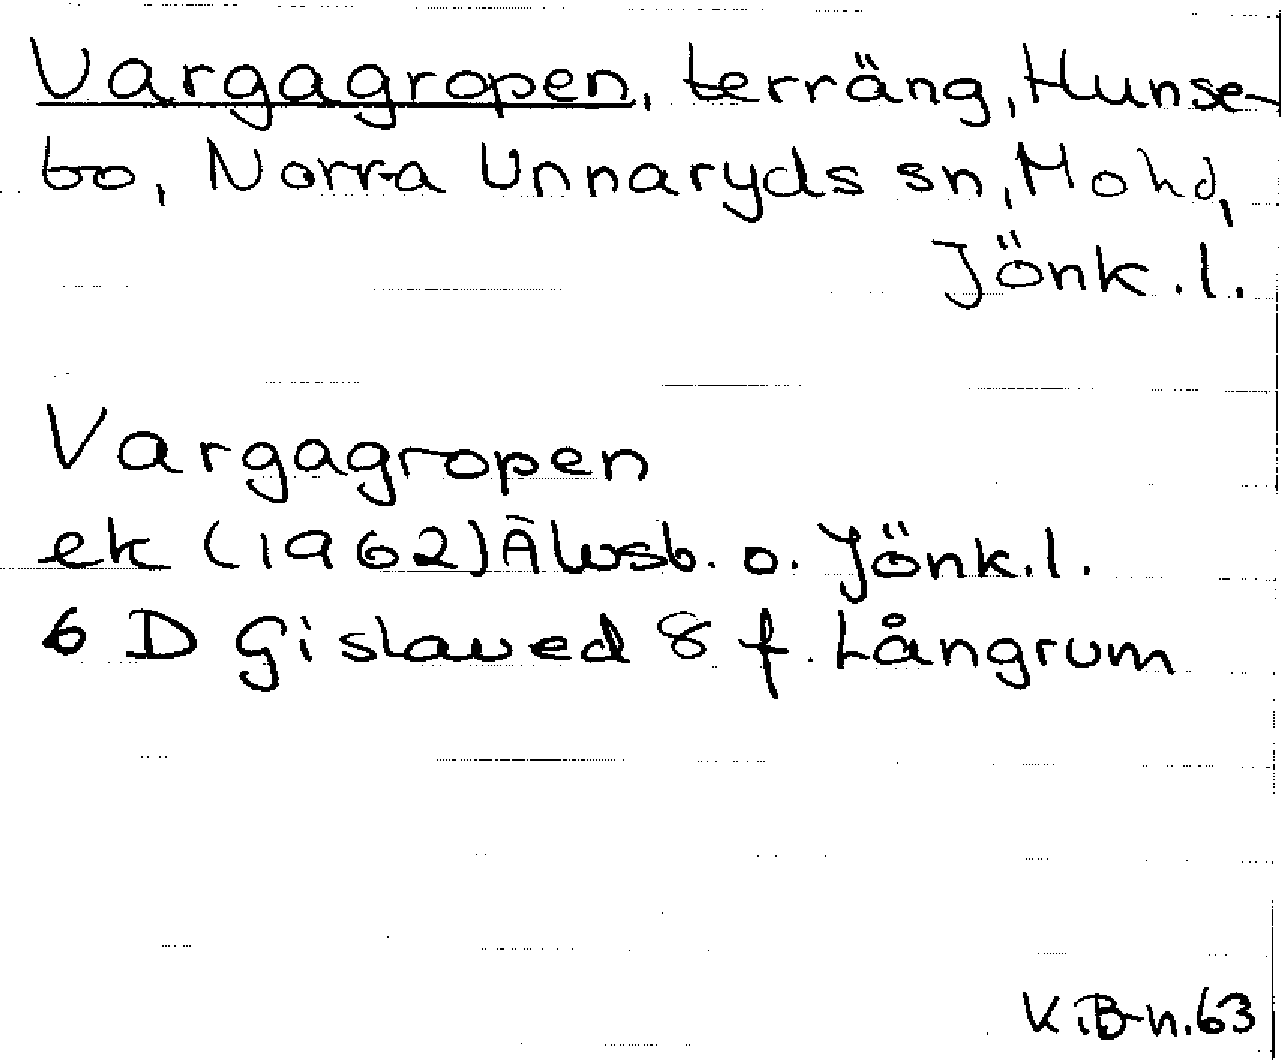 Vargagropen, terräng, Hunse-
bo, Norra Unnaryds sn, Mohd,
Jönk. l.
Vargagropen
ek (1962) Älvsb. o. Jönk. l.
6 D Gislaved 8 f. Långrum
K.B-n. 63